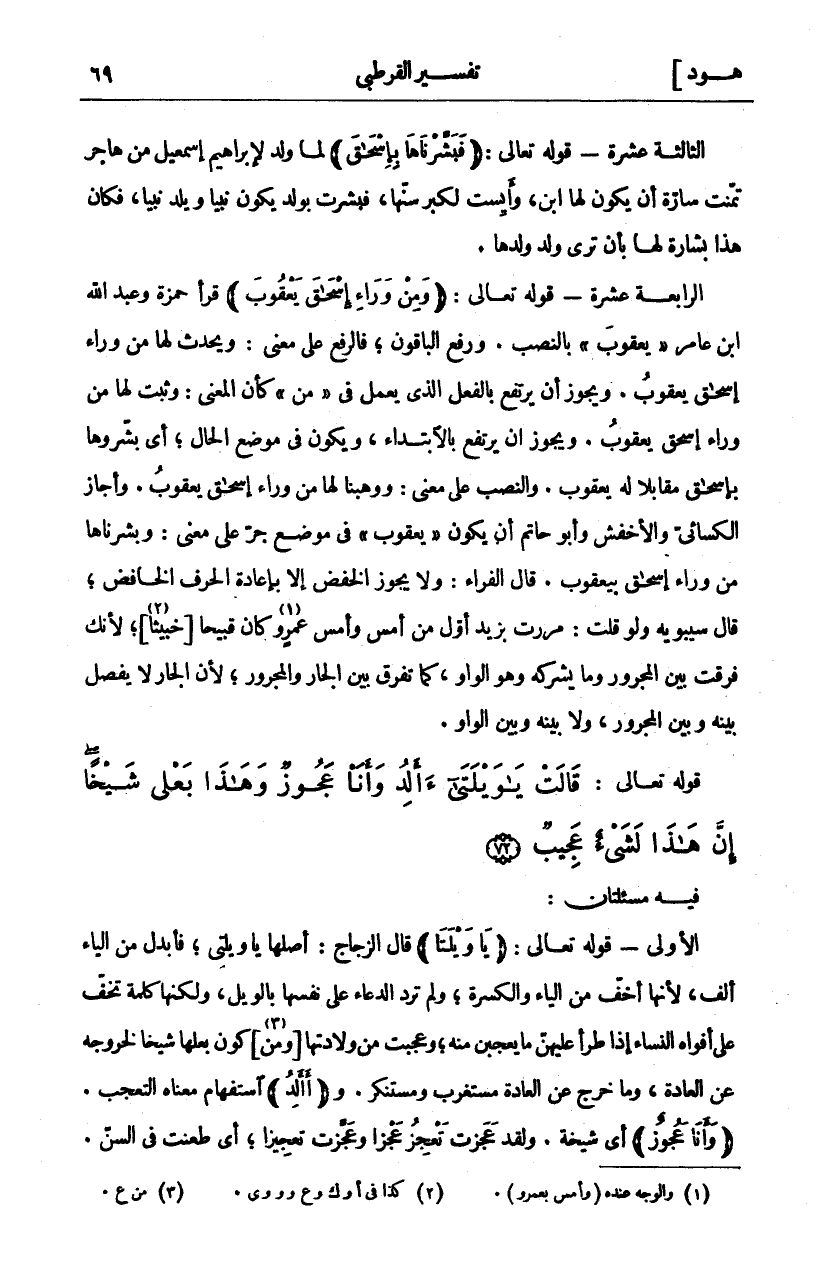 هـود ]
تفسـير القرطبى
٦٩
الثالثـة عشرة — قوله تعالى : ﴿ فَبَشَّرْنَاهَا بِإِسْحَٰقَ ﴾ لمـا ولد لإبراهيم إسمعيل من هاجر
تمنّت سارّة أن يكون لها ابن، وأَيِست لكبر سنّها، فبشرت بولد يكون نبيا ويلد نبيا، فكان
هذا بشارة لهـا بأن ترى ولد ولدها .
الرابعـة عشرة — قوله تعـالى : ﴿ وَمِنْ وَرَاءِ إِسْحَٰقَ يَعْقُوبَ ﴾ قرأ حمزة وعبد الله
ابن عامر « يعقوبَ » بالنصب . ورفع الباقون ؛ فالرفع على معنى : ويحدث لها من وراء
إسحٰق يعقوبُ . ويجوز أن يرتفع بالفعل الذى يعمل فى « من » كأن المعنى : وثبت لها من
وراء إسحٰق يعقوبُ . ويجوز ان يرتفع بالآبتـداء ، ويكون فى موضع الحال ؛ أى بشّروها
بإسحٰق مقابلا له يعقوب . والنصب على معنى : ووهبنا لها من وراء إسحٰق يعقوبُ . وأجاز
الكسائىّ والأخفش وأبو حاتم أن يكون « يعقوب » فى موضـع جرّ على معنى : وبشرناها
من وراء إسحٰق بيعقوب . قال الفراء : ولا يجوز الخفض إلا بإعادة الحرف الخـافض ؛
قال سيبويه ولو قلت : مررت بزيد أوّل من أمس وأمس عمرٍو (١) كان قبيحا [خبيثا] (٢) ؛ لأنك
فرقت بين المجرور وما يشركه وهو الواو ، كما تفرق بين الجار والمجرور ؛ لأن الجار لا يفصل
بينه وبين المجرور ، ولا بينه وبين الواو .
قوله تعـالى : قَالَتْ يَٰوَيْلَتَىٰٓ ءَأَلِدُ وَأَنَا۠ عَجُـوزٌ وَهَٰـذَا بَعْلِى شَـيْخًاۖ
إِنَّ هَـٰذَا لَشَىْءٌ عَجِيبٌ ﴿٧٢﴾
فيـه مسئلتان :
الأولى — قوله تعـالى : ﴿ يَا وَيْلَتَا ﴾ قال الزجاج : أصلها يا ويلتِى ؛ فأبدل من الياء
ألف، لأنها أخفّ من الياء والكسرة ؛ ولم ترد الدعاء على نفسها بالويل، ولكنها كلمة تخفّ
على أفواه النساء إذا طرأ عليهنّ ما يعجبن منه؛ وعجبت من ولادتها [ومن] (٣) كون بعلها شيخا لخروجه
عن العادة ، وما خرج عن العادة مستغرب ومستنكر . و﴿ أَأَلِدُ ﴾ آستفهام معناه التعجب .
﴿ وَأَنَا عَجُوزٌ ﴾ أى شيخة . ولقد عَجَزت تَعْجِزُ عَجْزا وعَجَّزت تعجيزا ؛ أى طعنت فى السنّ .
(١) والوجه عنده (وأمس بعمرو) .
(٢) كذا فى أ و ك و ع و و و ى .
(٣) من ع .